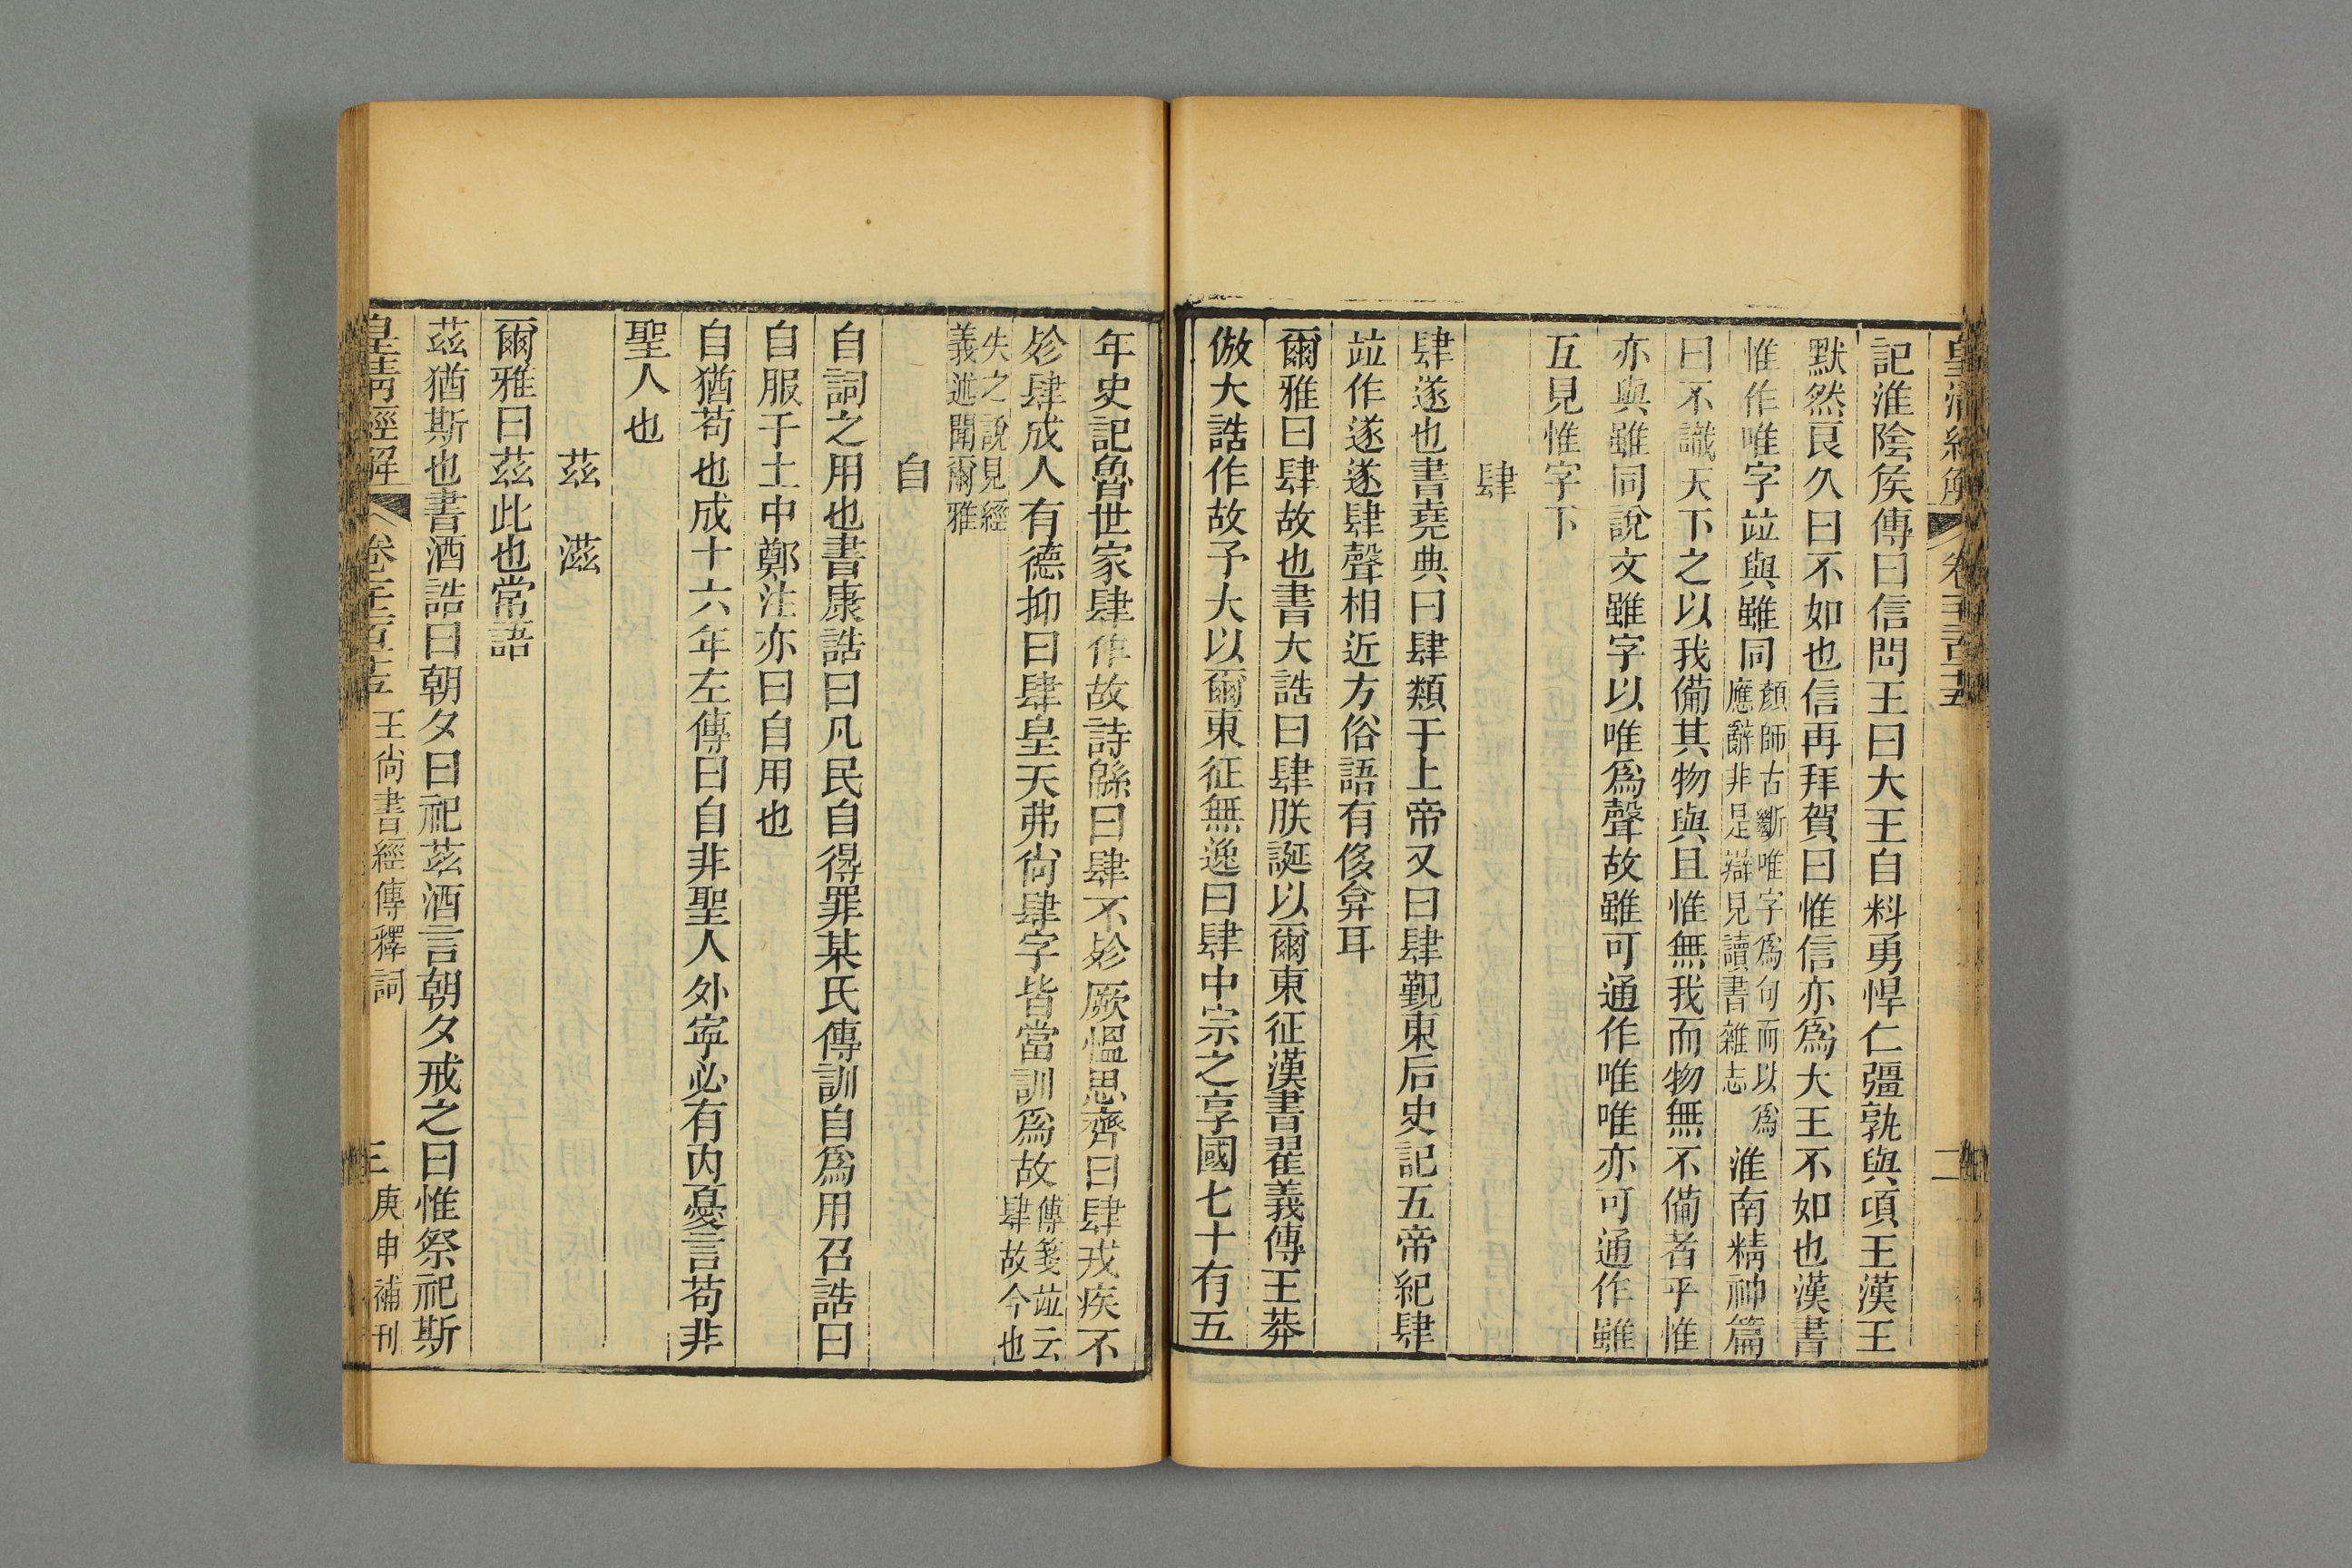 皇清經解 卷千二百十五 二
記淮陰侯傳曰信問王曰大王自料勇悍仁彊孰與項王漢王
默然良久曰不如也信再拜賀曰惟信亦爲大王不如也漢書
惟作唯字竝與雖同顏師古斷唯字爲句而以爲應辭非是辯見讀書雜志淮南精神篇
曰不識天下之以我備其物與且惟無我而物無不備者乎惟
亦與雖同說文雖字以唯爲聲故雖可通作唯唯亦可通作雖
互見惟字下
肆
肆遂也書堯典曰肆類于上帝又曰肆覲東后史記五帝紀肆
竝作遂遂肆聲相近方俗語有侈弇耳
爾雅曰肆故也書大誥曰肆朕誕以爾東征漢書翟義傳王莽
倣大誥作故予大以爾東征無逸曰肆中宗之享國七十有五
年史記魯世家肆作故詩緜曰肆不殄厥慍思齊曰肆戎疾不
殄肆成人有德抑曰肆皇天弗尙肆字皆當訓爲故傳箋竝云肆故今也
失之說見經義述聞爾雅
自
自詞之用也書康誥曰凡民自得罪某氏傳訓自爲用召誥曰
自服于土中鄭注亦曰自用也
自猶苟也成十六年左傳曰自非聖人外寧必有内憂言苟非
聖人也
茲 滋
爾雅曰茲此也常語
茲猶斯也書酒誥曰朝夕曰祀茲酒言朝夕戒之曰惟祭祀斯
皇清經解 卷千二百十五 王尙書經傳釋詞 三 庚申補刊